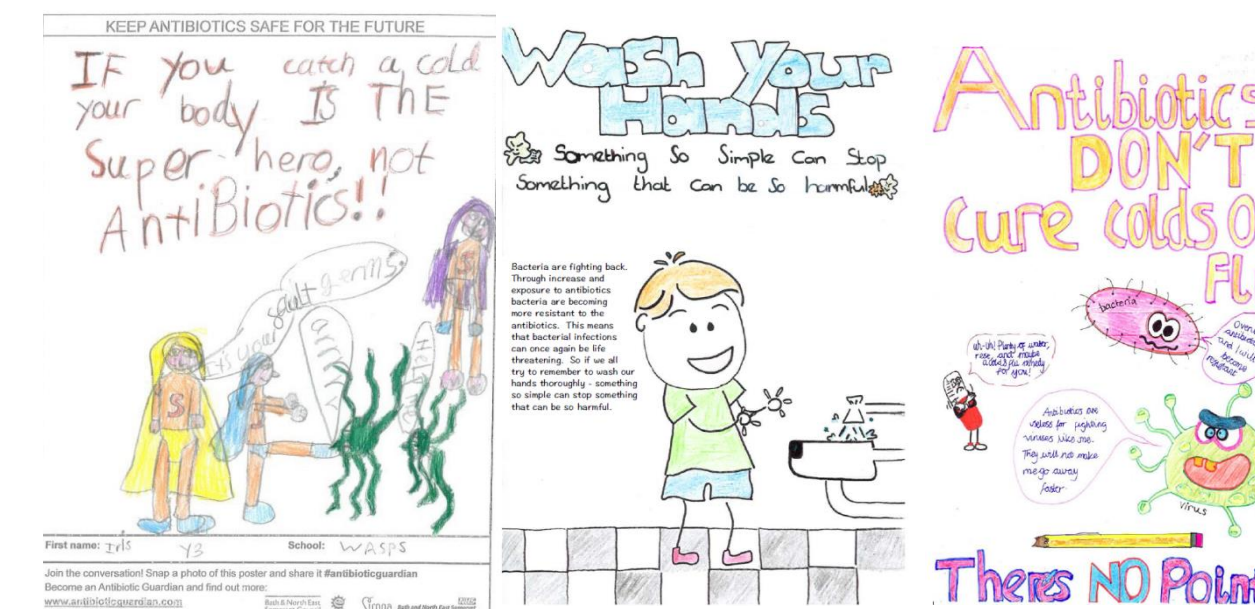 KEEP ANTIBIOTICS SAFE FOR THE FUTURE
IF you catch a cold
your body IS ThE
Super hero, not
AntiBiotics!!
It's your fault germs.
HELP ME
S
S
First name: Iris Y3 School: WASPS
Join the conversation! Snap a photo of this poster and share it #antibioticguardian
Become an Antibiotic Guardian and find out more:
www.antibioticguardian.com
Bath & North East
Sirona
Bath and North East Somerset
Wash Your
Hands
Something So Simple Can Stop
Something that Can be So harmful
Bacteria are fighting back.
Through increase and
exposure to antibiotics
bacteria are becoming
more resistant to the
antibiotics. This means
that bacterial infections
can once again be life
threatening. So if we all
try to remember to wash our
hands thoroughly - something
so simple can stop something
that can be so harmful.
Antibiotics
DON'T
Cure colds O
FL
bacteria
and I will
become
resistant
uh-uh! Plenty of water,
rest, and maybe
a cold & flu remedy
for you!
Antibiotics are
useless for fighting
viruses like me.
They will not make
me go away
faster.
virus
Theres NO Point